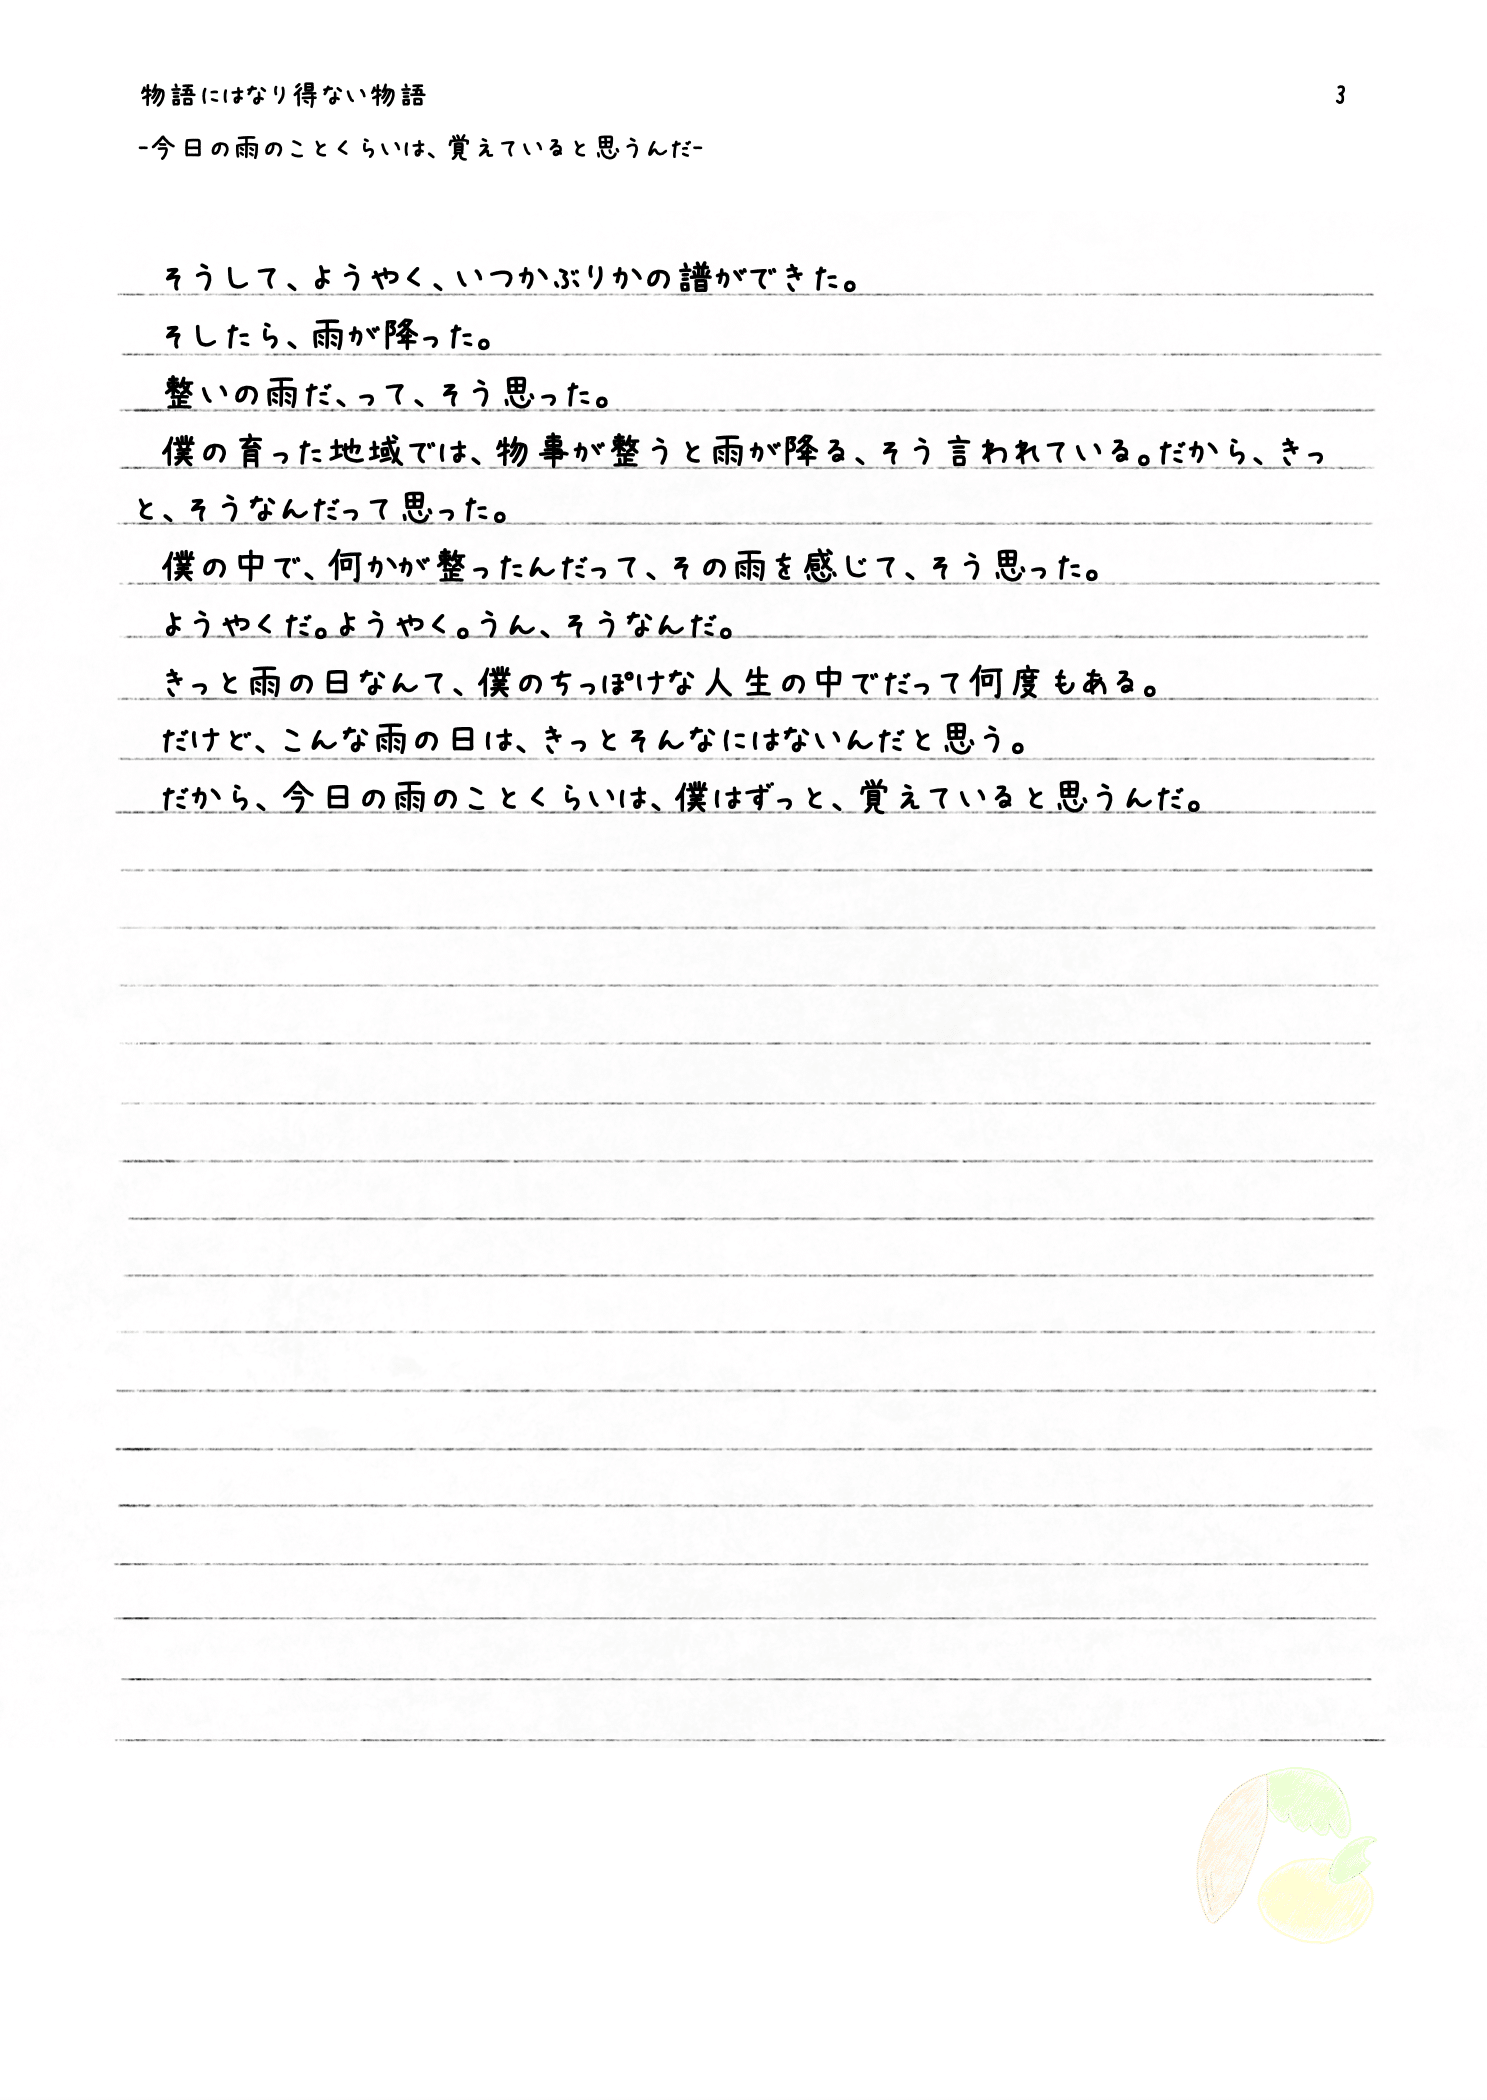 物語にはなり得ない物語
3
-今日の雨のことくらいは、覚えていると思うんだ-
そうして、ようやく、いつかぶりかの譜ができた。
そしたら、雨が降った。
整いの雨だ、って、そう思った。
僕の育った地域では、物事が整うと雨が降る、そう言われている。だから、きっ
と、そうなんだって思った。
僕の中で、何かが整ったんだって、その雨を感じて、そう思った。
ようやくだ。ようやく。うん、そうなんだ。
きっと雨の日なんて、僕のちっぽけな人生の中でだって何度もある。
だけど、こんな雨の日は、きっとそんなにはないんだと思う。
だから、今日の雨のことくらいは、僕はずっと、覚えていると思うんだ。